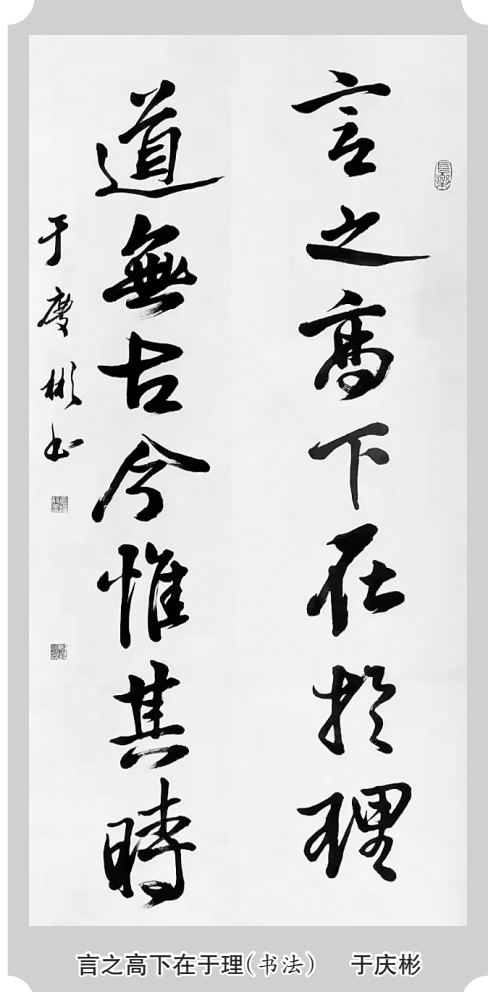 言之高下在於理
道無古今惟其時
于慶彬书
言之高下在于理（书法） 于庆彬